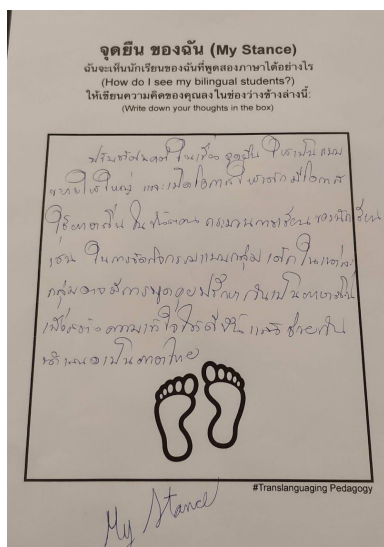 จุดยืน ของฉัน (My Stance)
ฉันจะเห็นนักเรียนของฉันที่พูดสองภาษาได้อย่างไร
(How do I see my bilingual students?)
ให้เขียนความคิดของคุณลงในช่องว่างข้างล่างนี้:
(Write down your thoughts in the box)
ปรับทัศนคติในเรื่อง จุดยืน ให้เป็นแบบ
ขยายให้ใหญ่ และเปิดโอกาสให้เด็กมีโอกาส
ใช้ภาษาถิ่น ในขั้นตอน กระบวนการเรียน ของนักเรียน
เช่น ในการจัดกิจกรรมแบบกลุ่ม เด็กในแต่ละ
กลุ่มอาจมีการพูดคุยปรึกษา กันเป็นภาษาถิ่น
เพื่อสร้างความเข้าใจให้ดีขึ้น แล้วช่วยกัน
นำเสนอเป็นภาษาไทย
#Translanguaging Pedagogy
My Stance